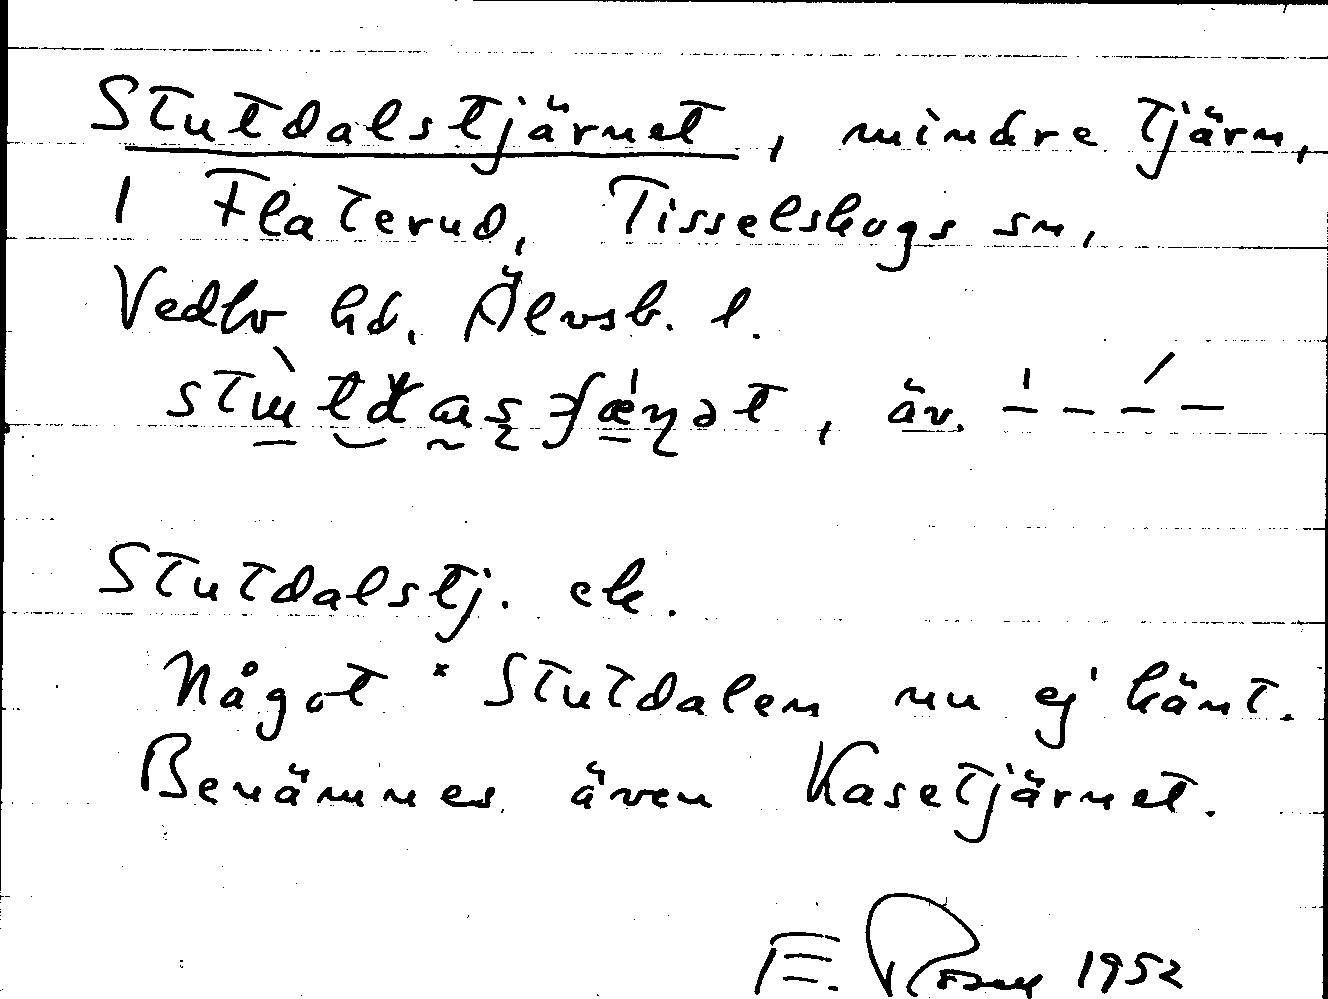 Stutdalstjärnet, mindre tjärn,
i Flaterud, Tisselskogs sn,
Vedbo hd, Älvsb. l.
äv.
Stutdalstj. ek.
Något *Stutdalen nu ej känt.
Benämnes även Kasetjärnet.
E. Rosell 1952